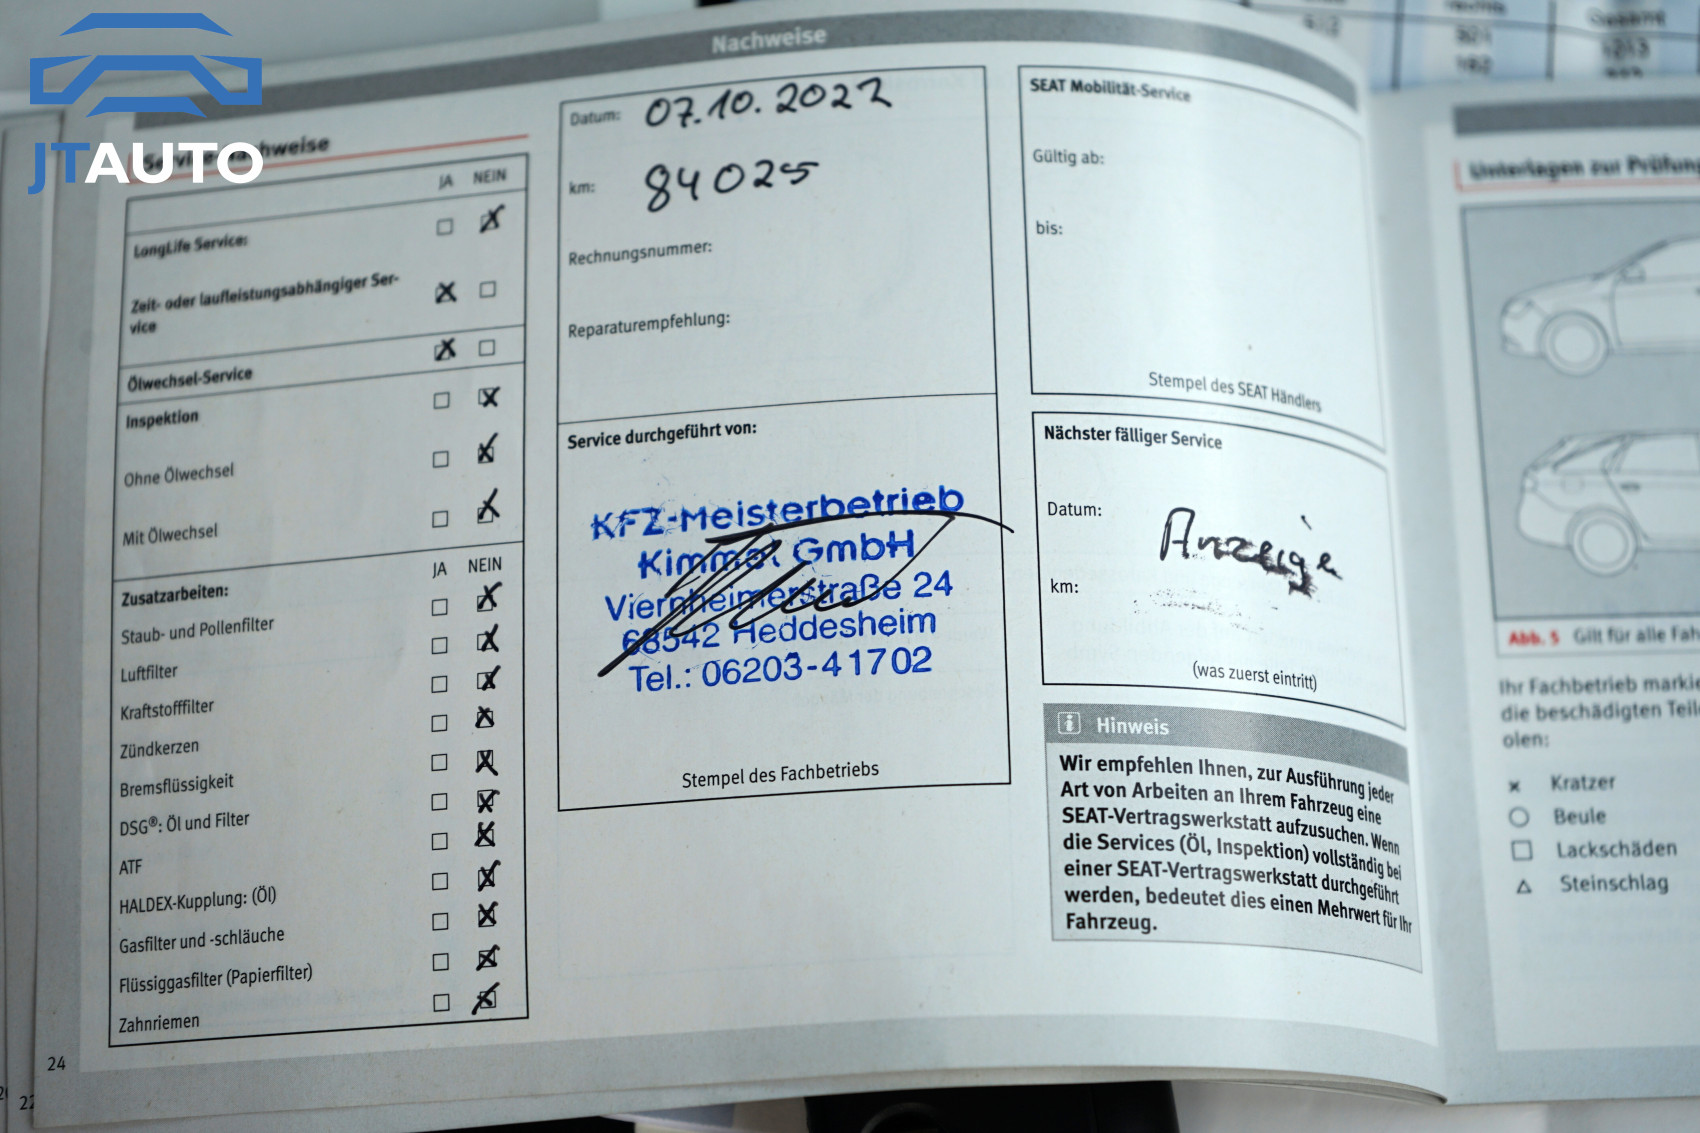 JTAUTO
Nachweise
Service-Nachweise
JA NEIN
LongLife Service:
Zeit- oder laufleistungsabhängiger Ser-
vice
Ölwechsel-Service
Inspektion
Ohne Ölwechsel
Mit Ölwechsel
JA NEIN
Zusatzarbeiten:
Staub- und Pollenfilter
Luftfilter
Kraftstofffilter
Zündkerzen
Bremsflüssigkeit
DSG®: Öl und Filter
ATF
HALDEX-Kupplung: (Öl)
Gasfilter und -schläuche
Flüssiggasfilter (Papierfilter)
Zahnriemen
24
22
Datum: 07.10.2022
km: 84025
Rechnungsnummer:
Reparaturempfehlung:
Service durchgeführt von:
KFZ-Meisterbetrieb
GmbH
Viernheimerstraße 24
68542 Heddesheim
Tel.: 06203-41702
Stempel des Fachbetriebs
SEAT Mobilität-Service
Gültig ab:
bis:
Stempel des SEAT Händlers
Nächster fälliger Service
Datum:
Anzeige
km:
(was zuerst eintritt)
Hinweis
Wir empfehlen Ihnen, zur Ausführung jeder
Art von Arbeiten an Ihrem Fahrzeug eine
SEAT-Vertragswerkstatt aufzusuchen. Wenn
die Services (Öl, Inspektion) vollständig bei
einer SEAT-Vertragswerkstatt durchgeführt
werden, bedeutet dies einen Mehrwert für Ihr
Fahrzeug.
Unterlagen zur Prüfung
Abb. 5 Gilt für alle Fah
Ihr Fachbetrieb markie
die beschädigten Teil
olen:
Kratzer
Beule
Lackschäden
Steinschlag